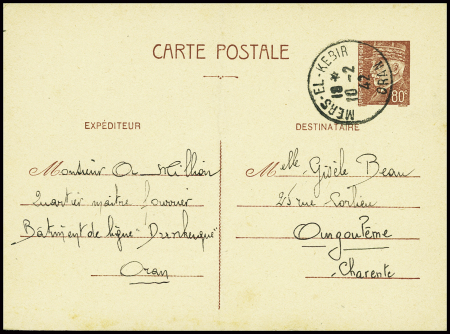 CARTE POSTALE
MERS-EL-KEBIR
ORAN
18 *
10 -2
42
80c
EXPÉDITEUR
Monsieur A. Million
Quartier maître fourrier
Bâtiment de ligne "Dunkerque"
Oran
DESTINATAIRE
Melle Gisèle Beau
25 rue
Angoulême
Charente